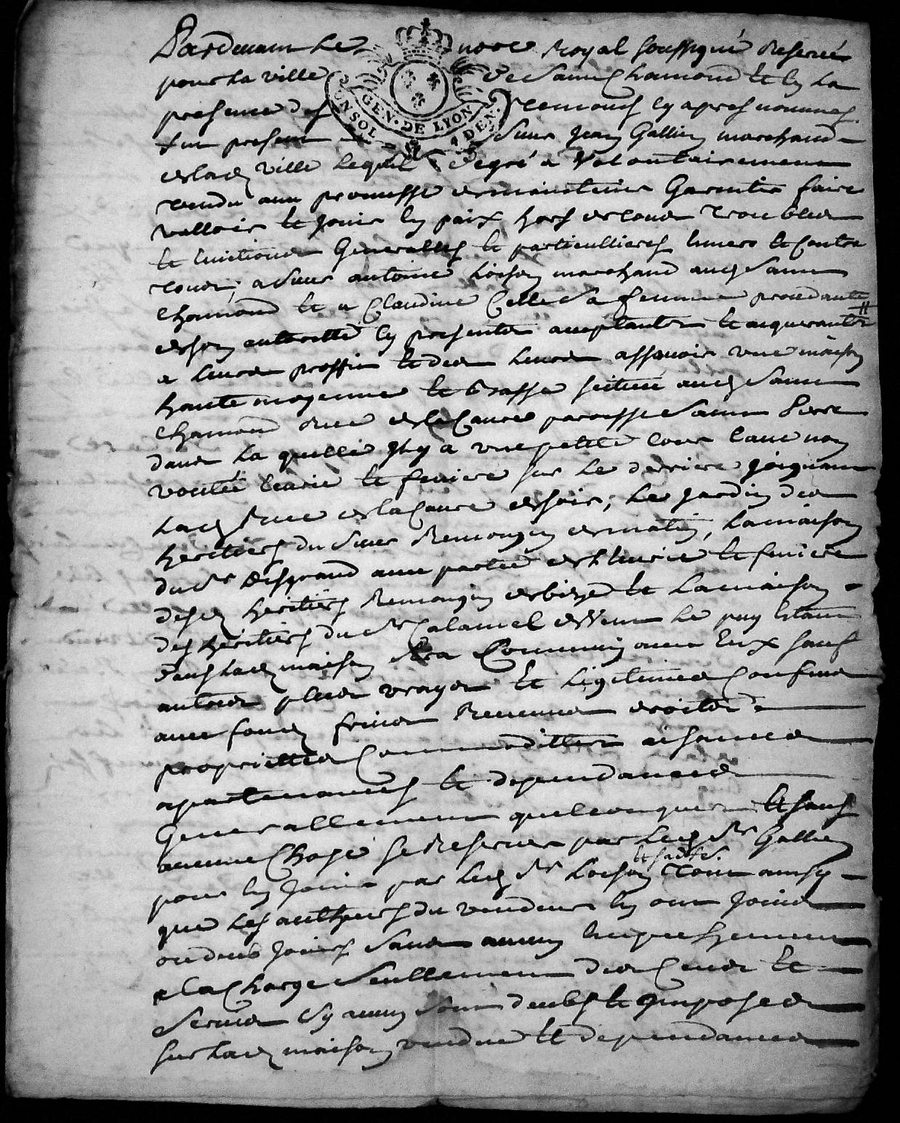 Pardevant Le nore Royal soussigné Reservé
pour la ville de Saint Chamond et en La
presence des temoins cy apres nommes
GEN. DE LYON
UN SOL DEN.
fut present Sieur Jean Gallien marchand
de lad ville Lequel de gré a Volontairement
vendu avec promesse de maintenir Garentir faire
valloir et Jouir en paix hors de tous troubles
et Evictions Generalles et particullieres Envers et Contre
tous, a Sieur antoine marchand aud Saint
Chamond et a Claudine Celle Sa femme procedante
de son authorité cy presents acceptants et acquerants
a Leurs proffit et des Leurs assavoir une maison
haute moyenne et basse scituée aud Saint
Chamond Rue de la parroisse Saint Pierre
dans La quelle Il y a une petite Cour Cave non
voutée Ecurie et feniere sur Le derriere Joignant
Lad Rue de la de soir, Le Jardin des
heritiers du Sieur de matin, La maison
du Sr avec partie de Lecurie et feniere
desd heritiers de bize et La maison
des heritiers du Sr Calamel de vent Le puy Etant
dans Lad maison Commun avec Eux sauf
autres plus vrayes et Legitimes Confins
avec fonds Revenus droits
proprietés Commodittés aisances
apartenances et dependances
Generallement quelconques et sans
aucune Chose se Reserver par Led Sr Gallien
pour En Jouir par Led Sr tout ainsy
que Les autheurs du vendeur En ont Jouis
ou deub Jouir Sans aucun Empechement
a La Charge Seullement des Cens et
Servis sy aucun Sont deubs et Imposes
sur Lad maison vendue et dependances